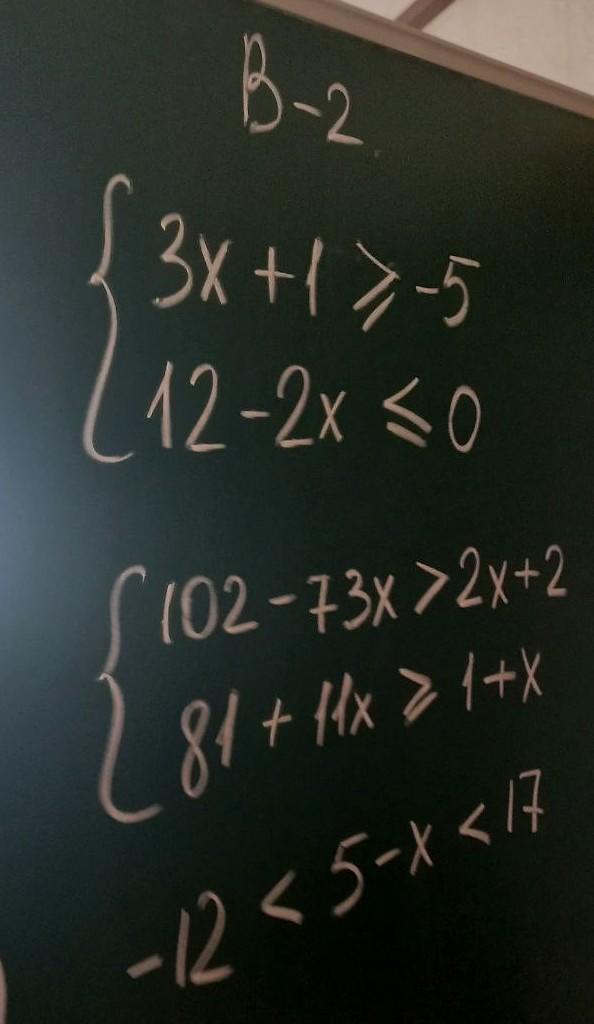 В-2
3x+1 ⩾ -5
12-2x ≤ 0
102-73x > 2x+2
81+11x ⩾ 1+x
-12 < 5-x < 17